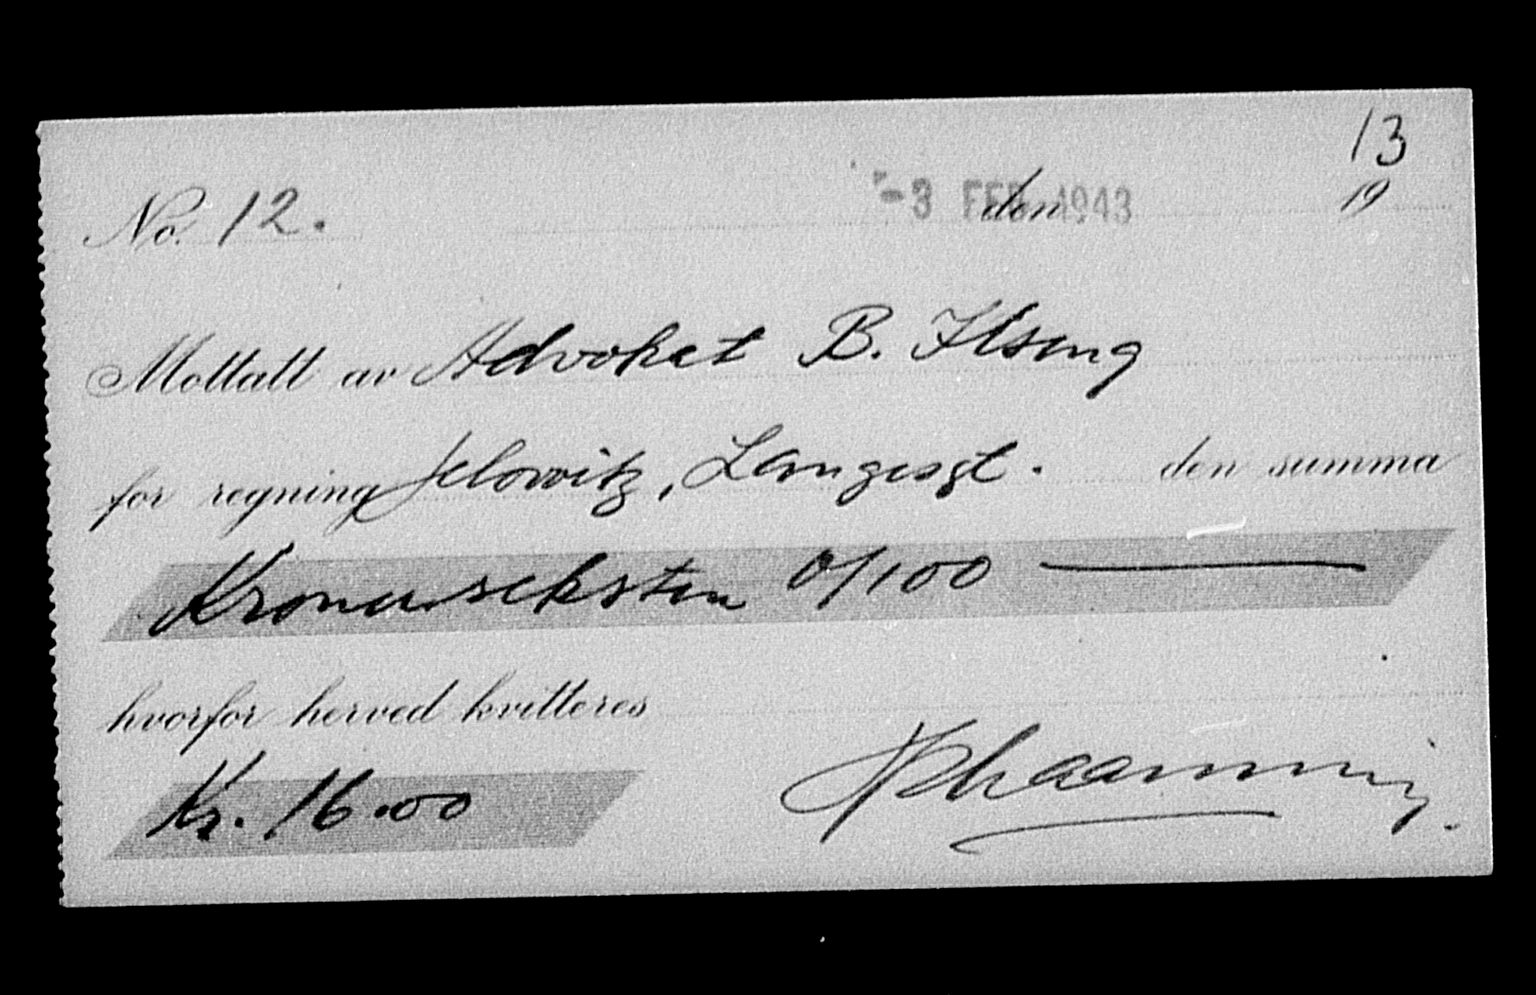 13
No. 12. -3 FEB 1943 den 19
Mottatt av Advokat B. Ilseng
for regning Jelowitz, Langesgt. den summa
Kroner seksten 0/100
hvorfor herved kvitteres
Kr. 16.00